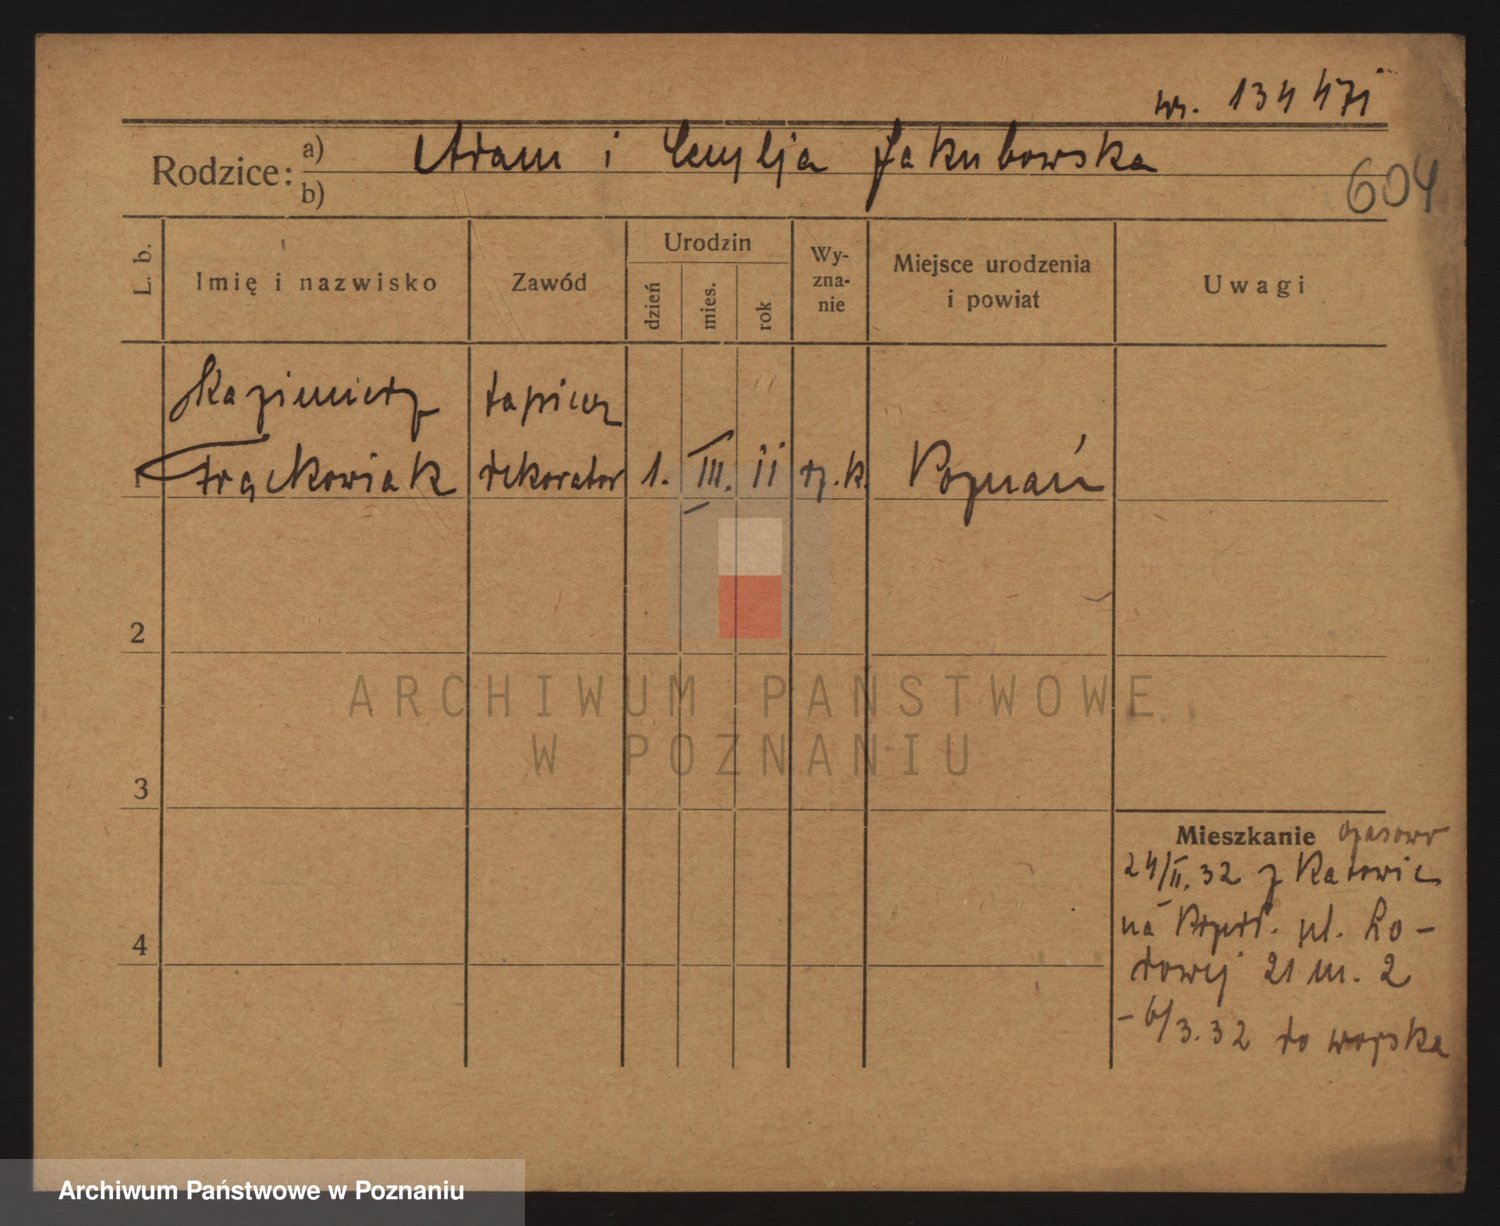 nr. 134471
Rodzice: a) Adam i Emylja Jakubowska
b)
604
L. b.
Imię i nazwisko
Zawód
Urodzin
dzień
mies.
rok
Wy-
zna-
nie
Miejsce urodzenia
i powiat
Uwagi
Kazimierz tapicer
Frąckowiak dekorator 1. III. 11 rz. k. Poznań
2
3
4
Mieszkanie czasowo
24/II. 32 z Katowic
na ul. Ro-
dowej 21 m. 2
- 6/3. 32 do wojska
ARCHIWUM PAŃSTWOWE
W POZNANIU
Archiwum Państwowe w Poznaniu